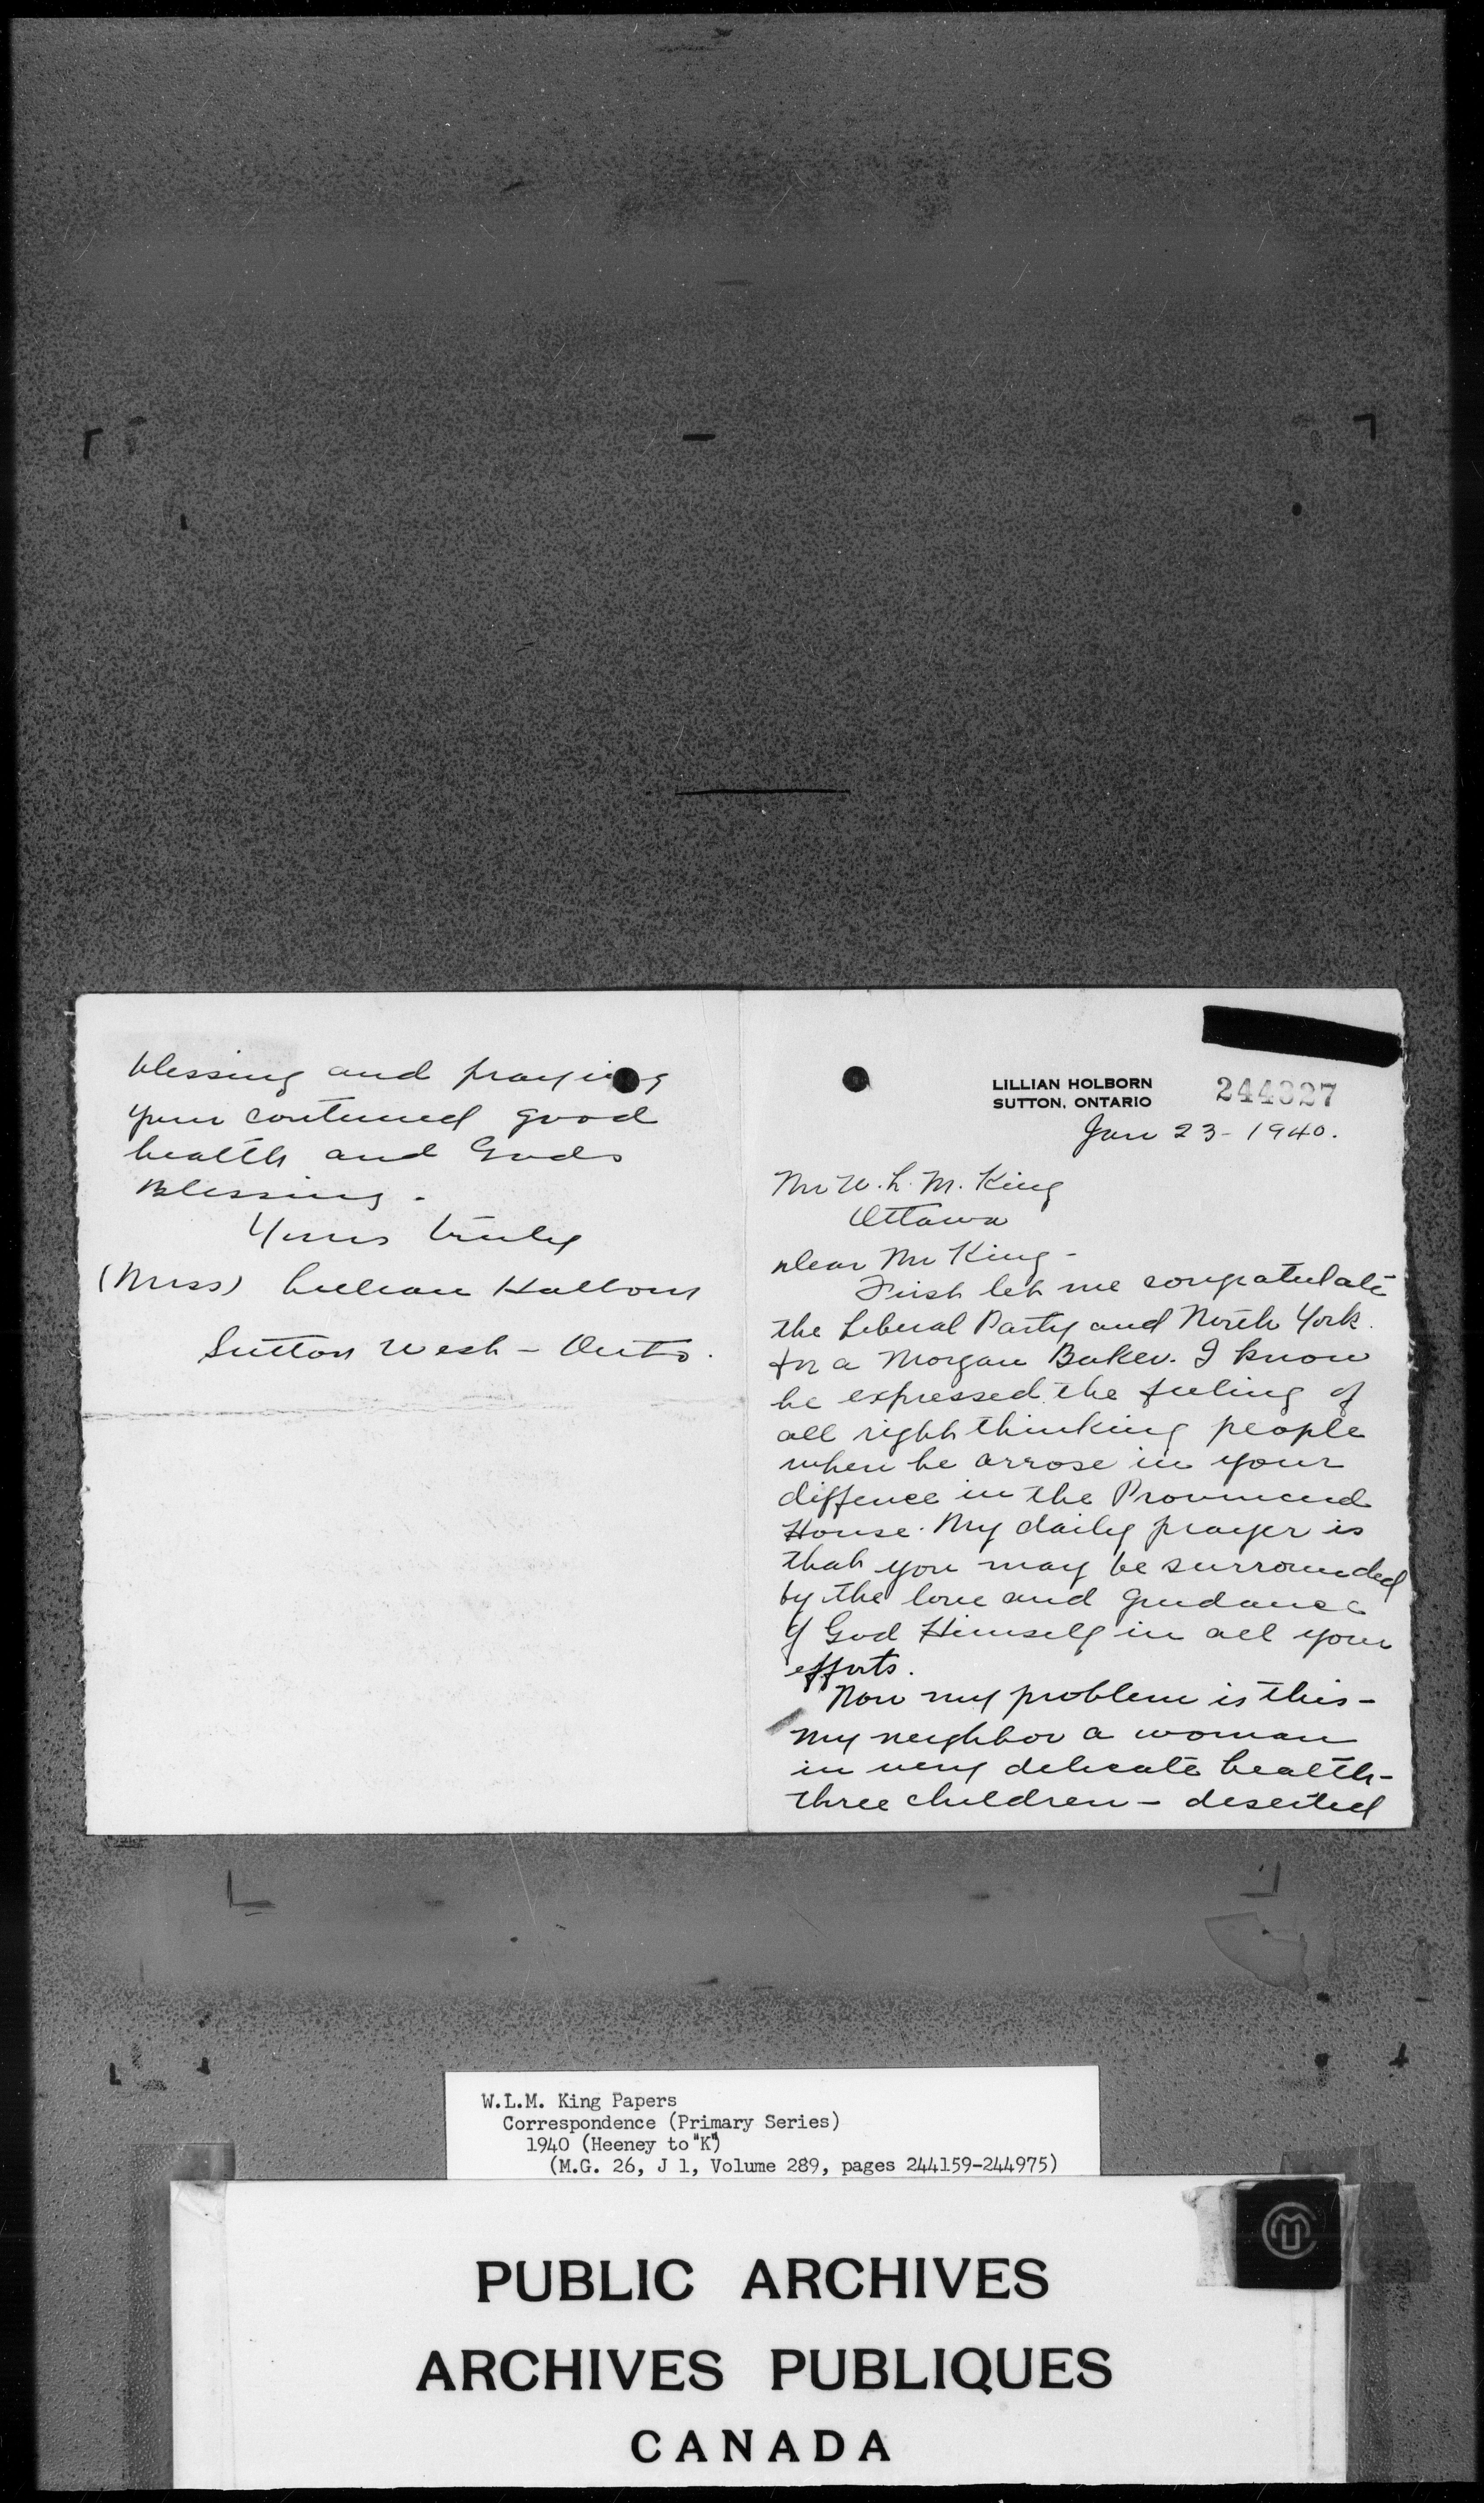 blessing and praying
your continued good
health and Gods
Blessing.
Yours truly
(Miss) Lillian Holborn
Sutton West - Onto.
LILLIAN HOLBORN
SUTTON, ONTARIO
244327
Jan 23 - 1940.
Mr W. L. M. King
Ottawa
Dear Mr King -
First let me congratulate
the Liberal Party and North York.
for a Morgan Baker. I know
he expressed the feeling of
all right thinking people
when he arrose in your
diffence in the Provincial
House. My daily prayer is
that you may be surrounded
by the love and guidance
of God Himself in all your
efforts.
Now my problem is this -
My neighbor a woman
in very delicate health -
three children - deserted
W.L.M. King Papers
Correspondence (Primary Series)
1940 (Heeney to "K")
(M.G. 26, J 1, Volume 289, pages 244159-244975)
PUBLIC ARCHIVES
ARCHIVES PUBLIQUES
CANADA